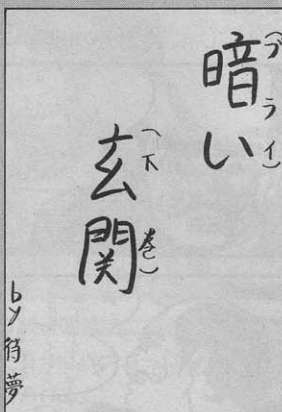 暗い
(ブライ)
玄関
(下巻)
by 待夢